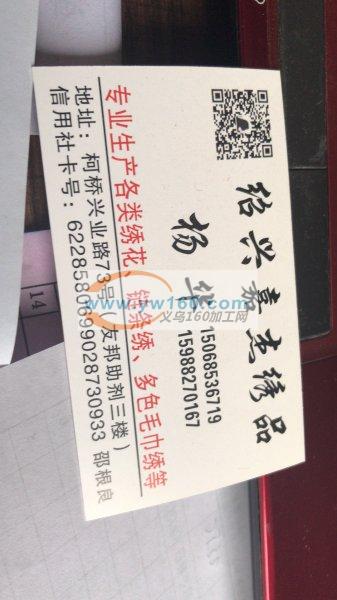 绍兴嘉杰绣品
杨华
15068536719
15988270167
专业生产各类绣花、链条绣、多色毛巾绣等
地址：柯桥兴业路73号（友邦助剂三楼）
信用社卡号：6228580699028730933 邵根良
www.yw160.com
义乌160加工网
14